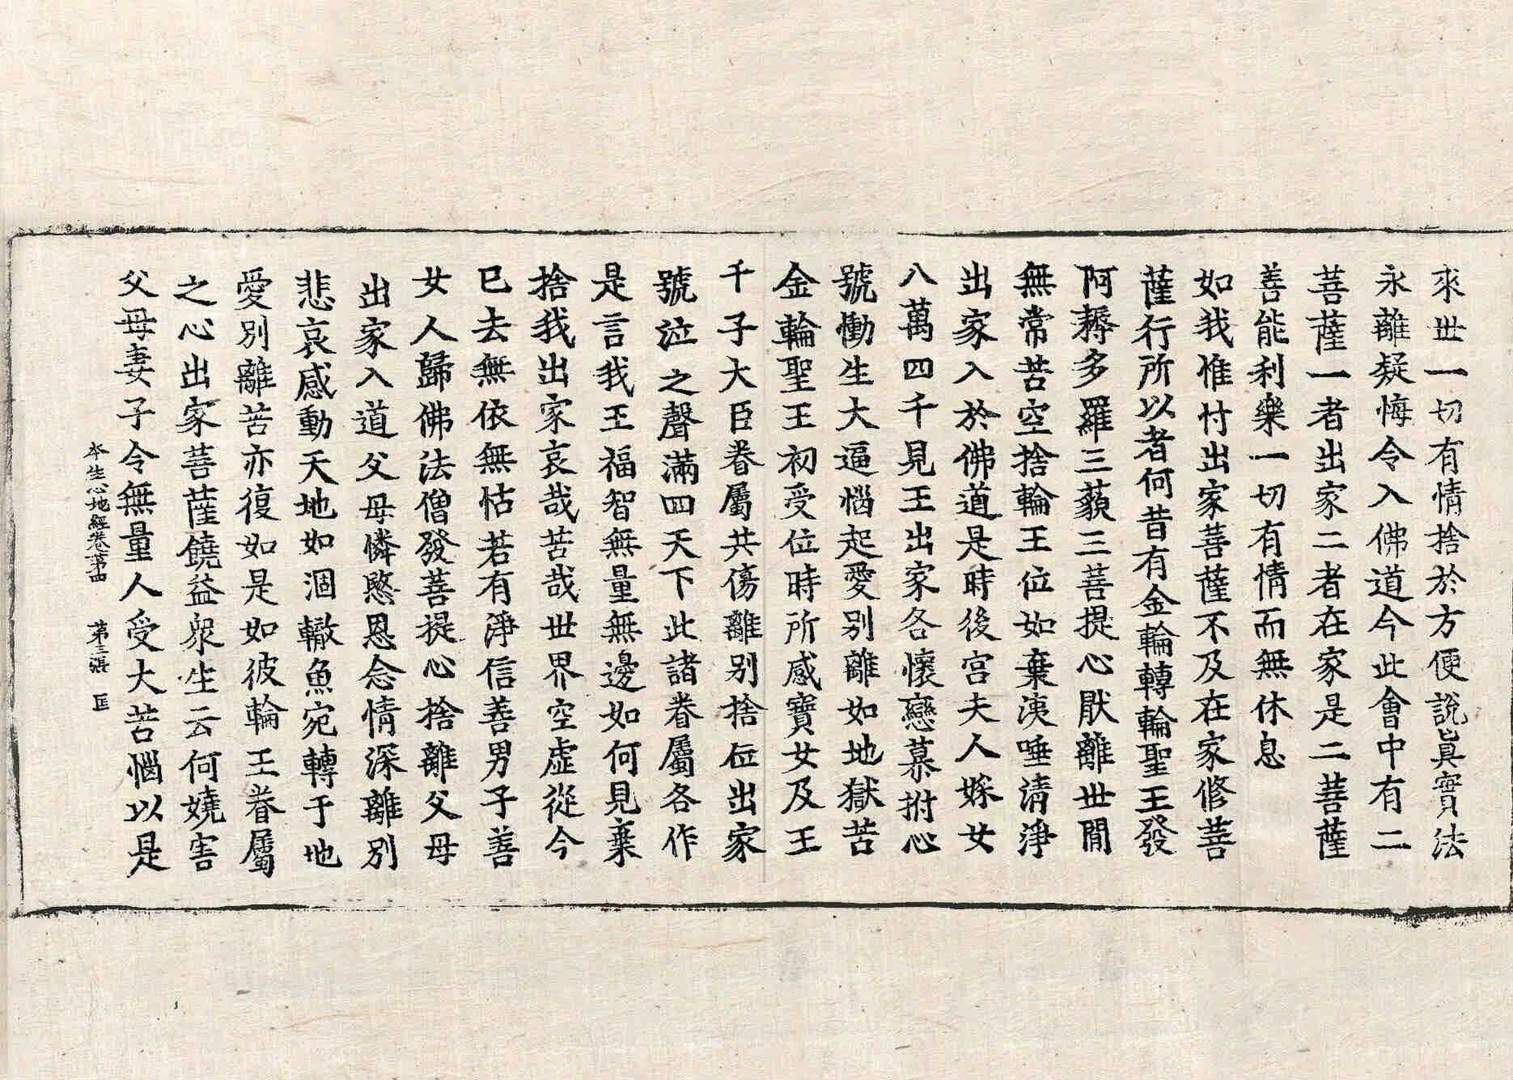 來世一切有情捨於方便說眞實法
永離疑悔令入佛道今此會中有二
菩薩一者出家二者在家是二菩薩
善能利樂一切有情而無休息
如我惟忖出家菩薩不及在家修菩
薩行所以者何昔有金輪轉輪聖王發
阿耨多羅三藐三菩提心猒離世閒
無常苦空捨輪王位如棄洟唾清淨
出家入於佛道是時後宮夫人婇女
八萬四千見王出家各懷戀慕拊心
號慟生大逼惱起愛别離如地獄苦
金輪聖王初受位時所感寶女及王
千子大臣眷屬共傷離别捨位出家
號泣之聲滿四天下此諸眷屬各作
是言我王福智無量無邊如何見棄
捨我出家哀哉苦哉世界空虛從今
已去無依無怙若有淨信善男子善
女人歸佛法僧發菩提心捨離父母
出家入道父母憐愍恩念情深離别
悲哀感動天地如涸轍魚宛轉于地
愛别離苦亦復如是如彼輪王眷屬
之心出家菩薩饒益衆生云何嬈害
父母妻子令無量人受大苦惱以是
本生心地經卷第四　第三張　匡